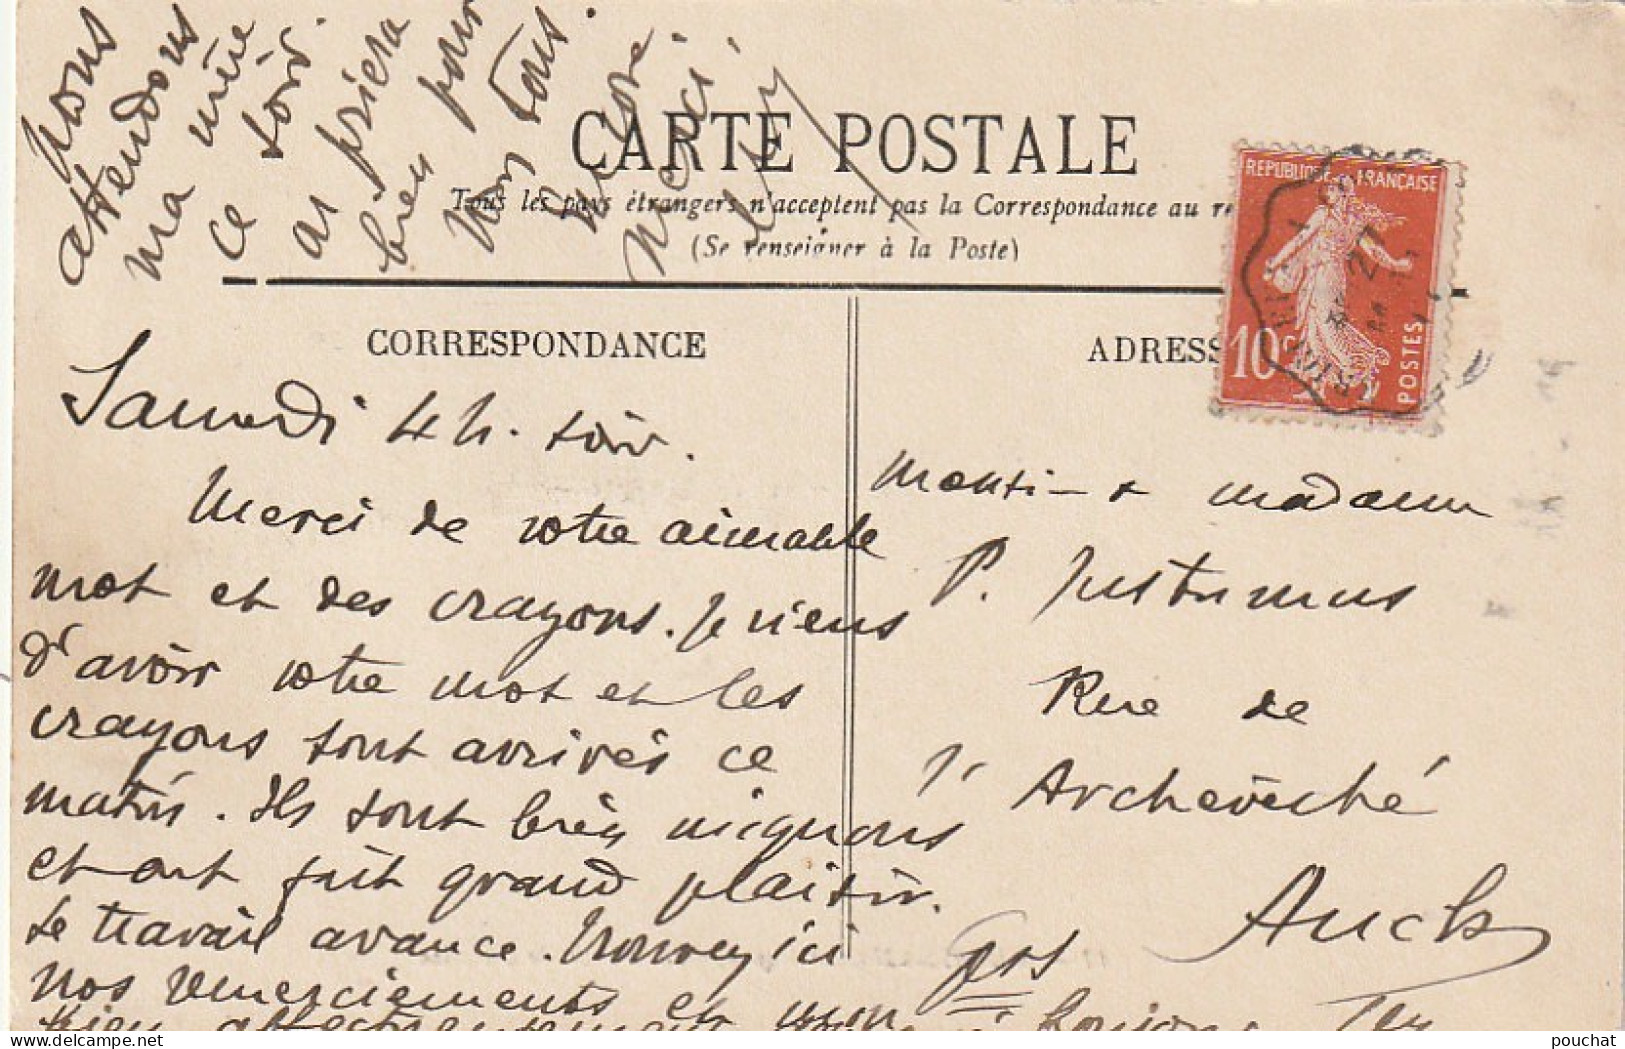 Nous
attendons
ma mère
ce soir.
on priera
bien pour
vous tous.
Encore
merci.
CARTE POSTALE
Tous les pays étrangers n'acceptent pas la Correspondance au re
(Se renseigner à la Poste)
CORRESPONDANCE
ADRESS
REPUBLIQUE FRANÇAISE
10 c
POSTES
Samedi 4 h. soir.
Merci de votre aimable
mot et des crayons. Je viens
d'avoir votre mot et les
crayons sont arrivés ce
matin. Ils sont bien mignons
et ont fait grand plaisir.
Le travail avance. Trouvez ici
nos remerciements et mon
bien affectueusement bonjour
Monsi- & madame
P.
Rue de
l'Archevêché
Auch
Gers
pouchat